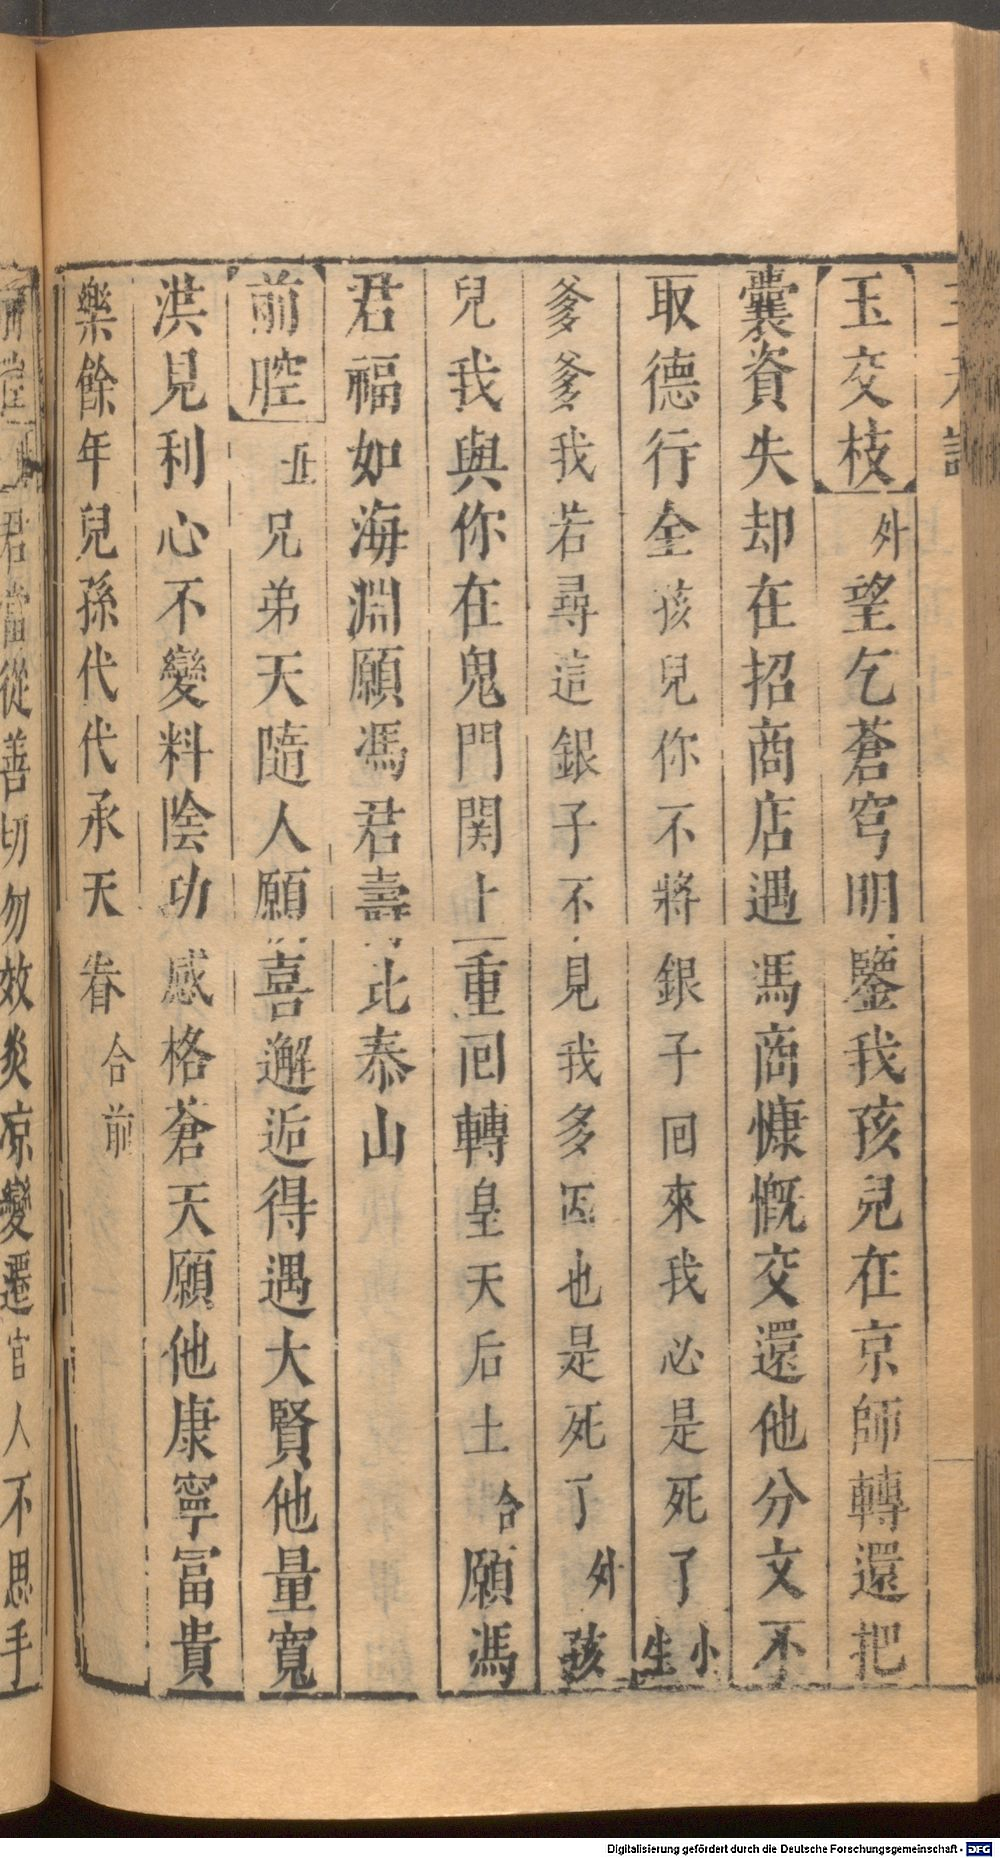 玉交枝 外 望乞蒼穹明鑒我孩兒在京師轉還把
囊資失却在招商店遇馮商慷慨交還他分文不
取德行全 孩兒你不將銀子回來我必是死了 小生
爹爹我若尋這銀子不見我多因也是死了 外 孩
兒我與你在鬼門関上重囘轉皇天后土 合 願馮
君福如海淵願馮君壽比泰山
前腔 丑 兄弟天隨人願喜邂逅得遇大賢他量寬
洪見利心不變料陰功感格蒼天願他康寧冨貴
樂餘年兒孫代代承天眷 合前
前腔 君當從善切勿效炎凉變遷官人不思手
Digitalisierung gefördert durch die Deutsche Forschungsgemeinschaft - DFG